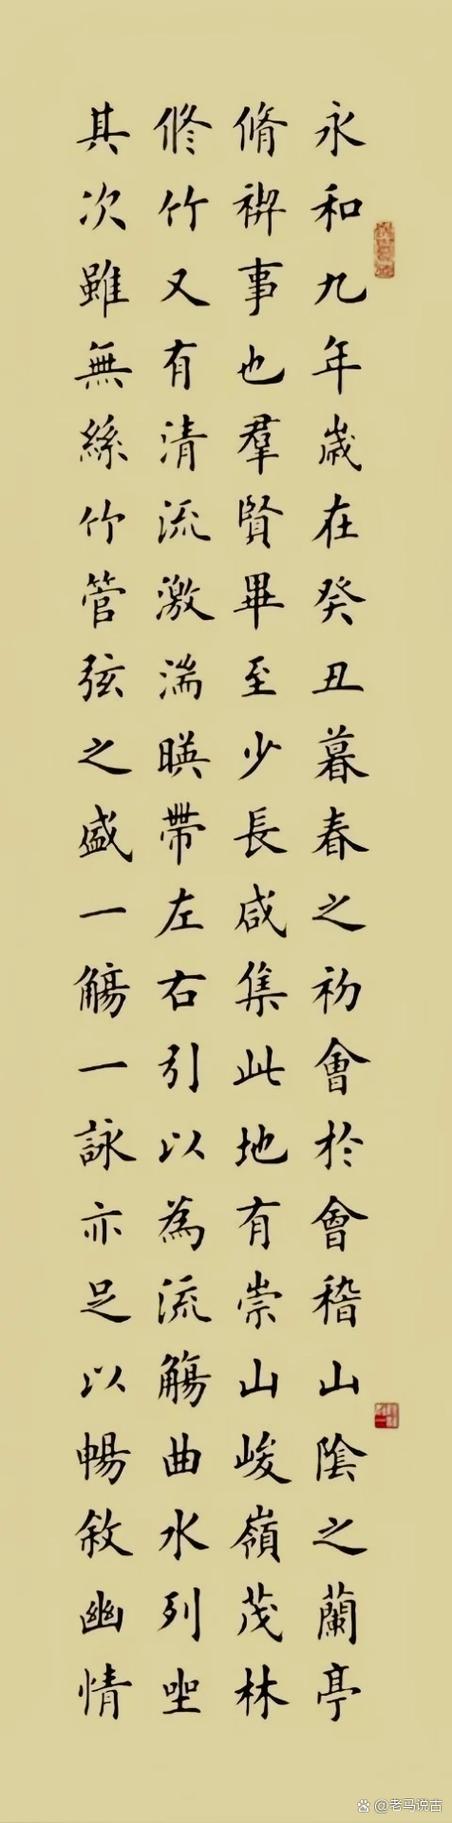 永和九年歲在癸丑暮春之初會於會稽山陰之蘭亭
脩禊事也羣賢畢至少長咸集此地有崇山峻嶺茂林
修竹又有清流激湍暎帶左右引以為流觴曲水列坐
其次雖無絲竹管弦之盛一觴一詠亦足以暢敘幽情
@老马说古